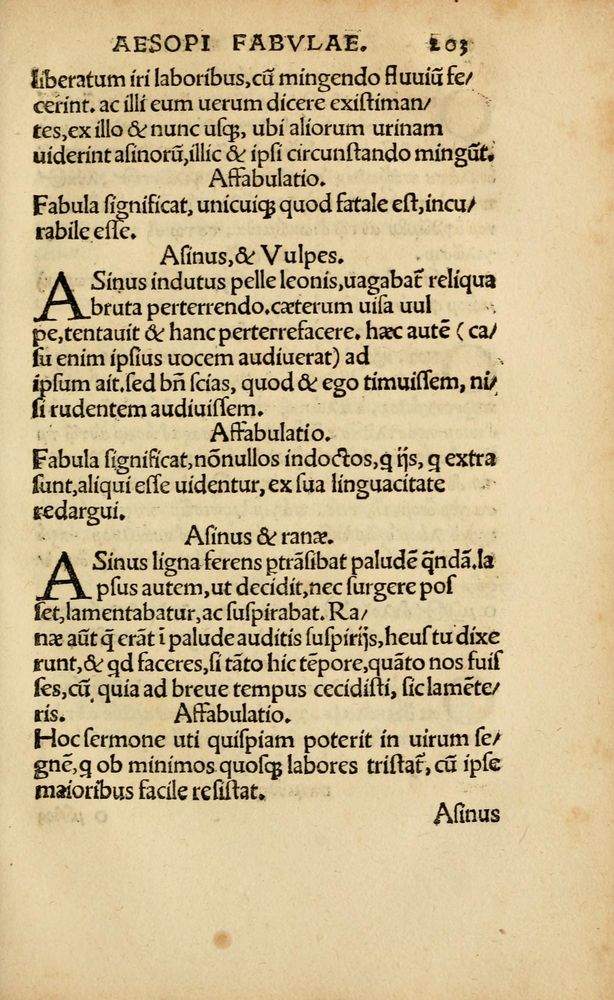 AESOPI FABVLAE. 203
liberatum iri laboribus,cũ mingendo fluuiũ fe/
cerint. ac illi eum uerum dicere existiman/
tes,ex illo & nunc usq;, ubi aliorum urinam
uiderint asinorũ,illic & ipsi circunstando mingũt.
Affabulatio.
Fabula significat, unicuiq; quod fatale est,incu/
rabile esse.
Asinus,& Vulpes.
ASinus indutus pelle leonis,uagabat᷑ reliqua
bruta perterrendo.cæterum uisa uul
pe,tentauit & hanc perterrefacere. hæc autẽ (ca/
su enim ipsius uocem audiuerat) ad
ipsum ait.sed bñ scias, quod & ego timuissem, ni/
si rudentem audiuissem.
Affabulatio.
Fabula significat,nõnullos indoctos,ꝗ ijs, ꝗ extra
sunt,aliqui esse uidentur, ex sua linguacitate
redargui.
Asinus & ranæ.
ASinus ligna ferens ptrãsibat paludẽ q̃ndã.la
psus autem,ut decidit,nec surgere pos
set,lamentabatur,ac suspirabat. Ra/
næ aũt q̃ erãt ĩ palude auditis suspirijs,heus tu dixe
runt,& qd faceres,si tãto hic tẽpore,quãto nos fuis
ses,cũ quia ad breue tempus cecidisti, sic lamẽte/
ris. Affabulatio.
Hoc sermone uti quispiam poterit in uirum se/
gnẽ,ꝗ ob minimos quosq; labores tristat᷑, cũ ipse
maioribus facile resistat.
Asinus